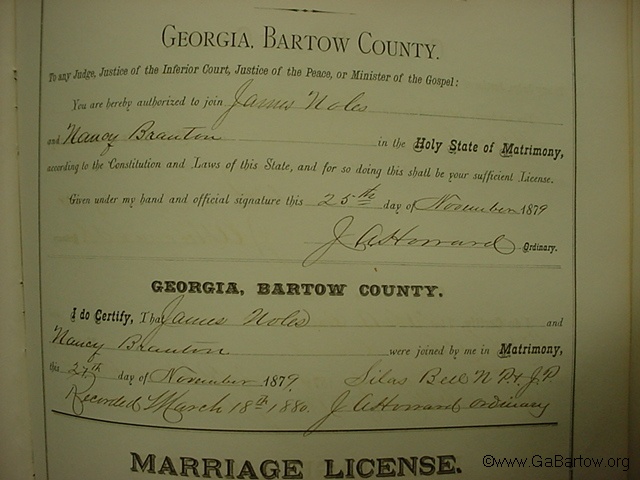 GEORGIA, BARTOW COUNTY.
To any Judge, Justice of the Inferior Court, Justice of the Peace, or Minister of the Gospel:
You are hereby authorized to join James Noles
and Nancy Branton in the Holy State of Matrimony,
according to the Constitution and Laws of this State, and for so doing this shall be your sufficient License.
Given under my hand and official signature this 25th day of November 1879
J A Howard Ordinary.
GEORGIA, BARTOW COUNTY.
I do Certify, That James Noles and
Nancy Branton were joined by me in Matrimony,
this 27th day of November 1879. Silas Bell N P & J.P
Recorded March 18th 1880. J A Howard Ordinary
MARRIAGE LICENSE.
©www.GaBartow.org